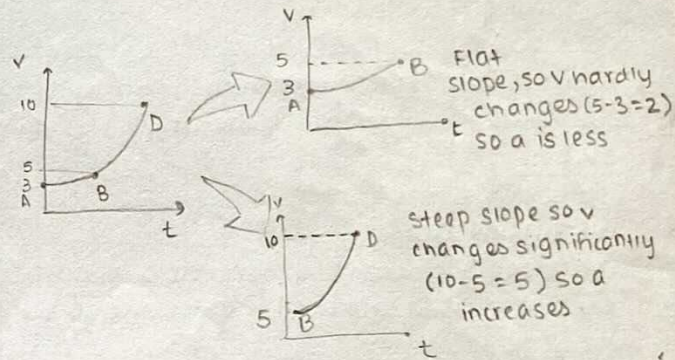 v
10
5
3
A
B
D
t
v
5
3
A
B
t
Flat
slope, so v hardly
changes (5-3=2)
so a is less
v
10
5
B
D
t
steep slope so v
changes significantly
(10-5=5) so a
increases